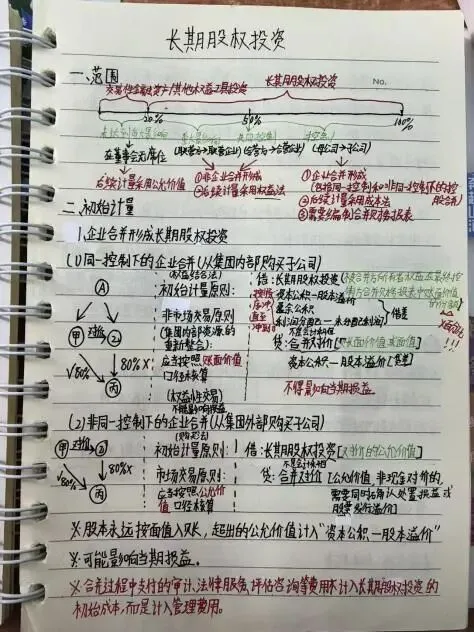 长期股权投资
No.
一、范围
交易性金融资产/其他权益工具投资 长期股权投资
20% 50% 100%
在董事会无席位 (联营方→联营企业) (合营方→合营企业) (母公司→子公司)
后续计量采用公允价值 ①非企业合并形成 ①企业合并形成
②后续计量采用权益法 (包括同一控制和非同一控制下的控股合并)
②后续计量采用成本法
③需要编制合并财务报表
二、初始计量
1.企业合并形成长期股权投资
(1)同一控制下的企业合并(从集团内部购买子公司)
(权益结合法)
初始计量原则:
借:长期股权投资
资本公积—股本溢价
盈余公积
利润分配—未分配利润
借差
贷:合并对价[账面价值或面值]
资本公积—股本溢价[贷差]
不得影响当期损益
A
甲 对价 乙
√80% 80%×
丙
非市场交易原则
(集团内部资源的
重新整合):
应当按照账面价值
口径核算
(权益性交易)
不能影响损益
(2)非同一控制下的企业合并(从集团外部购买子公司)
(购买法)
甲 对价 乙
√80% 80%×
丙
初始计量原则:
市场交易原则:
应当按照公允价
值口径核算
借:长期股权投资[对价的公允价值]
贷:合并对价[公允价值,非现金对价的,
需要同时确认处置损益或
股票发行溢价]
※股本永远按面值入账,超出的公允价值计入“资本公积—股本溢价”
※可能影响当期损益。
※合并过程中支付的审计、法律服务、评估咨询等费用不计入长期股权投资的
初始成本,而是计入管理费用。